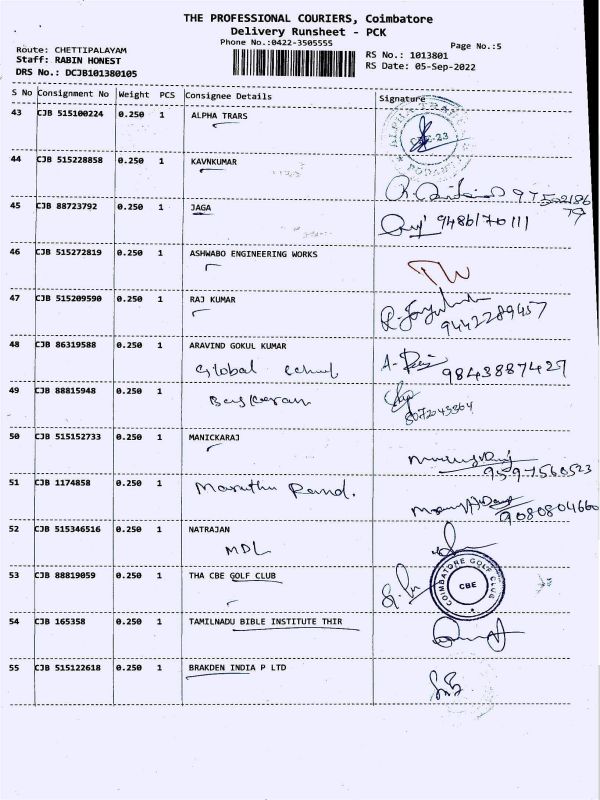 THE PROFESSIONAL COURIERS, Coimbatore
Delivery Runsheet - PCK
Phone No.:0422-3505555
Page No.:5
Route: CHETTIPALAYAM
Staff: RABIN HONEST
DRS No.: DCJB101380105
RS No.: 1013801
RS Date: 05-Sep-2022
S No Consignment No Weight PCS Consignee Details Signature
43 CJB 515100224 0.250 1 ALPHA TRARS
44 CJB 515228858 0.250 1 KAVNKUMAR
45 CJB 88723792 0.250 1 JAGA
9486170111
46 CJB 515272819 0.250 1 ASHWABO ENGINEERING WORKS
47 CJB 515209590 0.250 1 RAJ KUMAR
9442289457
48 CJB 86319588 0.250 1 ARAVIND GOKUL KUMAR
Global
9843887427
49 CJB 88815948 0.250 1
50 CJB 515152733 0.250 1 MANICKARAJ
9597560523
51 CJB 1174858 0.250 1 Maruthu Pand.
9080804660
52 CJB 515346516 0.250 1 NATRAJAN
MDL
53 CJB 88819059 0.250 1 THA CBE GOLF CLUB
COIMBATORE GOLF CLUB
CBE
54 CJB 165358 0.250 1 TAMILNADU BIBLE INSTITUTE THIR
55 CJB 515122618 0.250 1 BRAKDEN INDIA P LTD